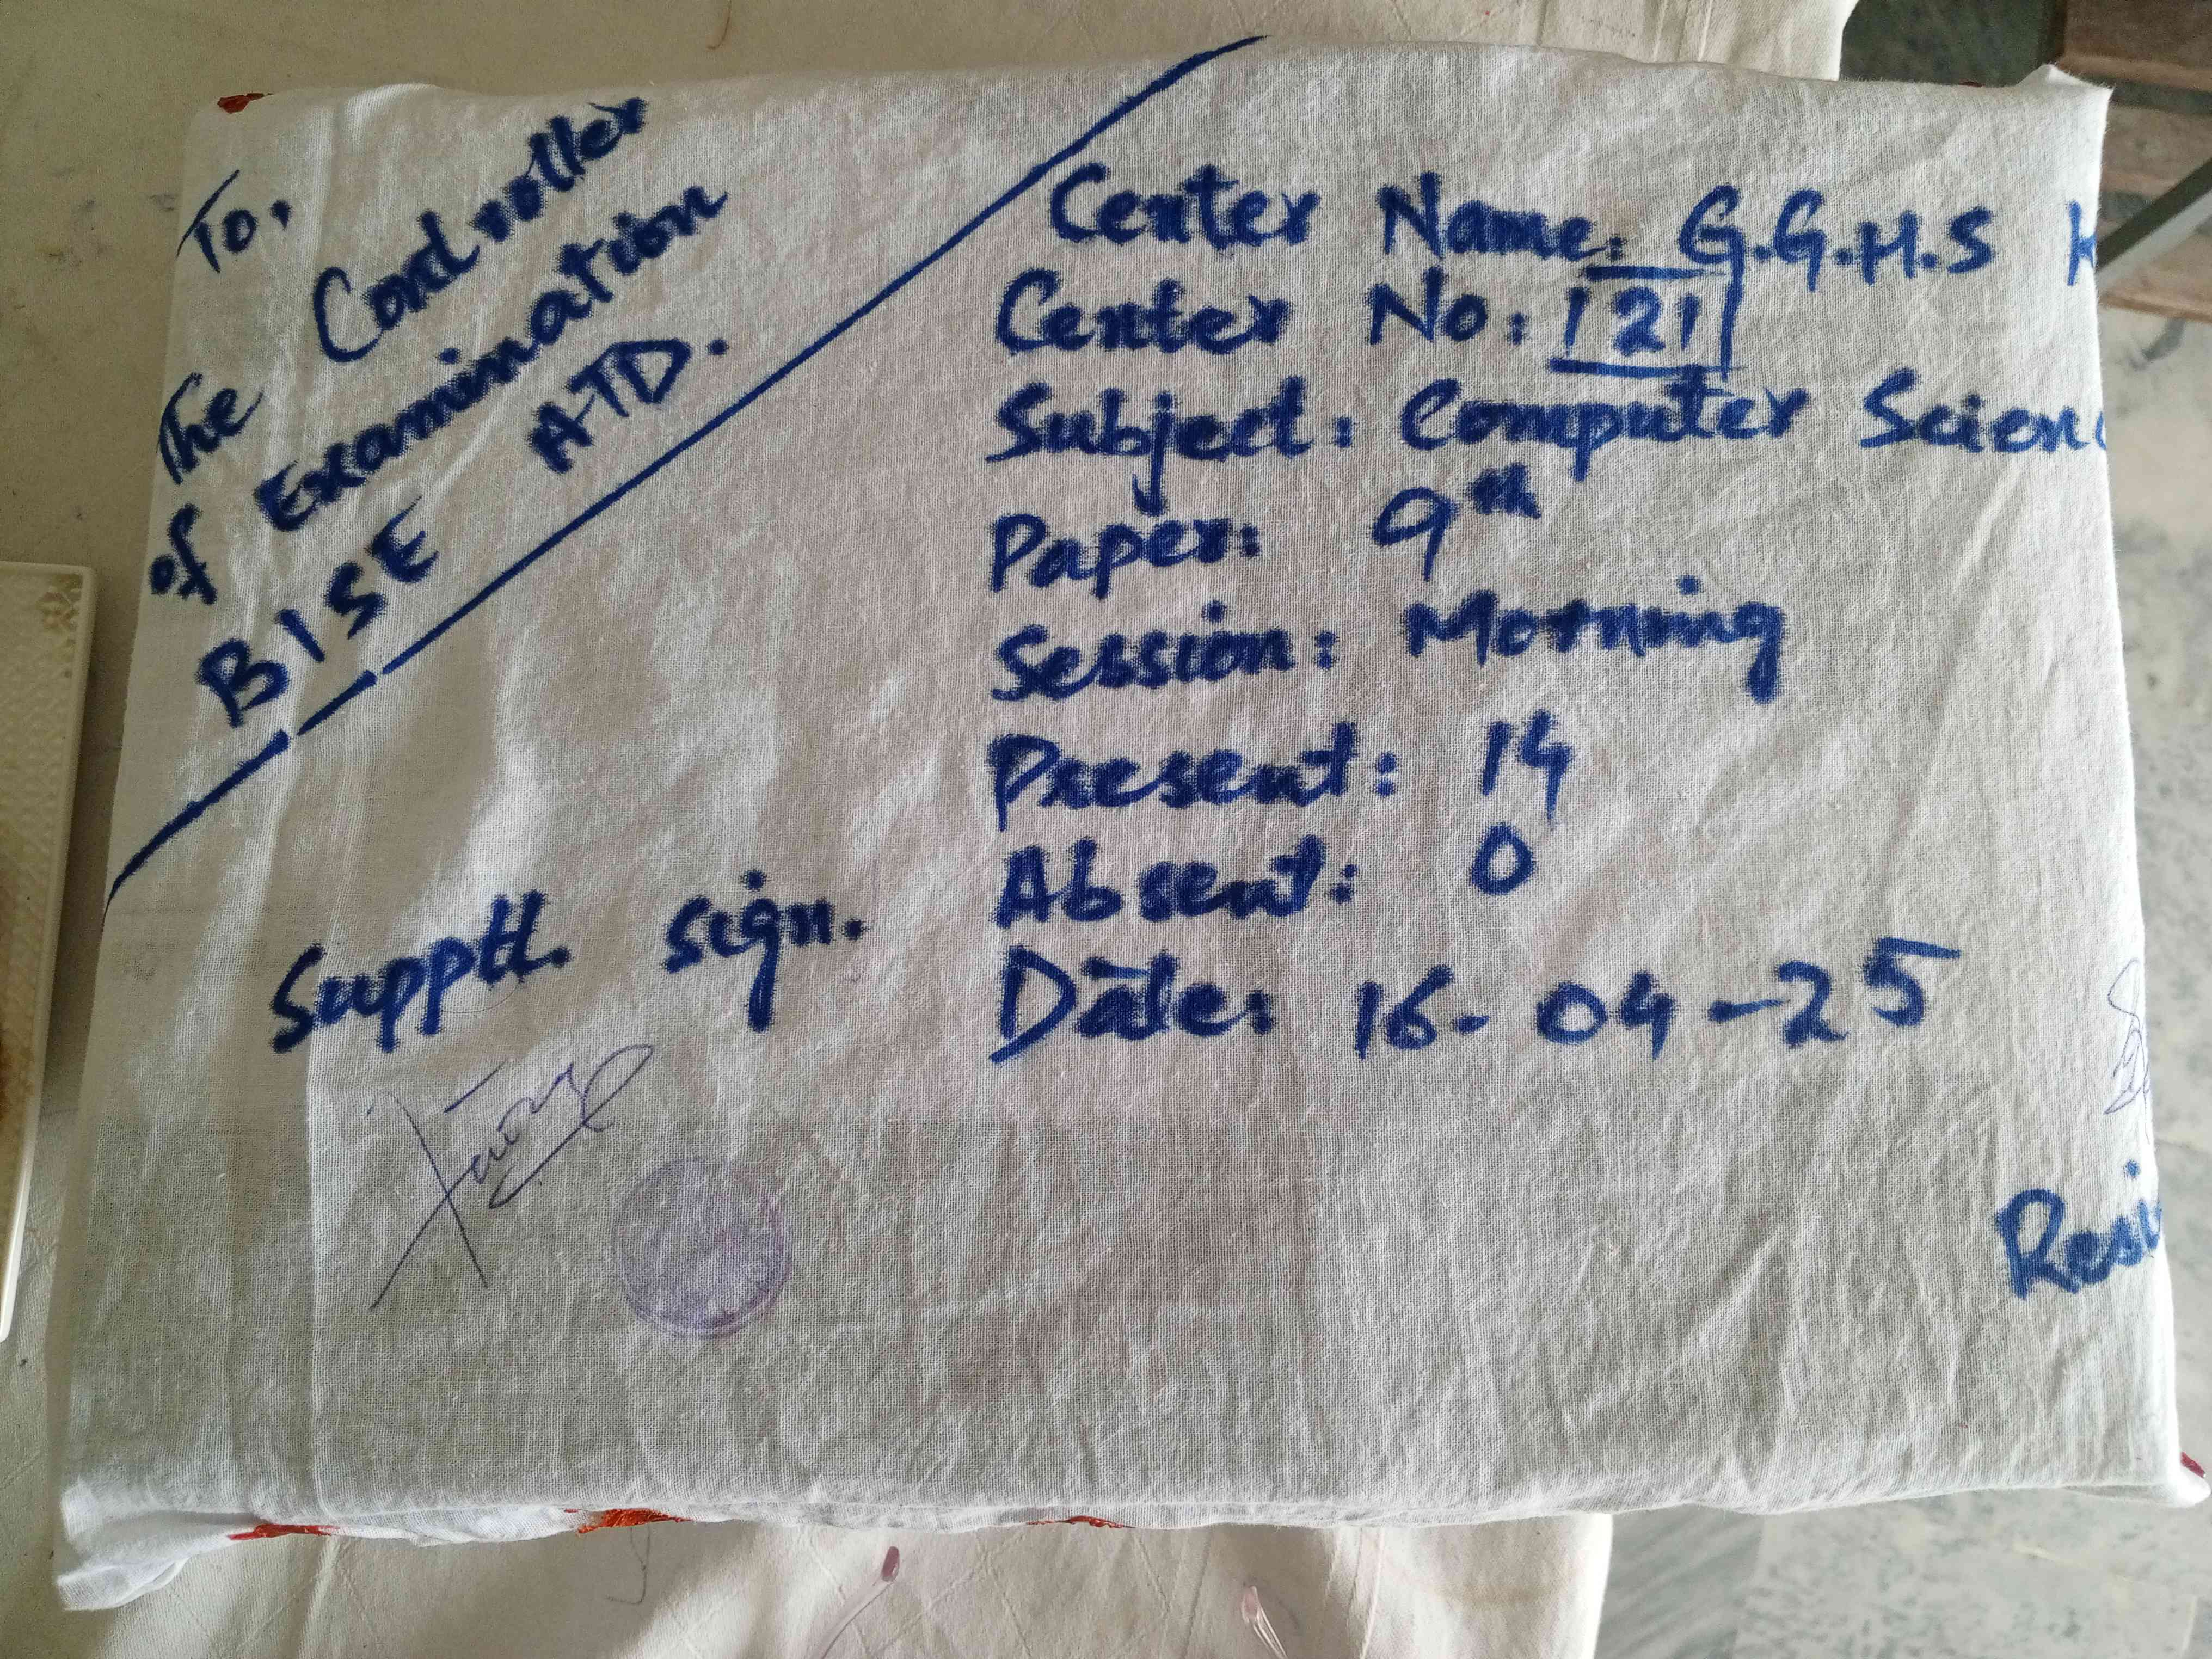 To,
The Controller
of Examination
BISE ATD.
Center Name: G.G.H.S
Center No: 121
Subject: Computer Scienc
Paper: 9th
Session: Morning
Present: 14
Absent: 0
Date: 16-04-25
Supptt. sign.
Resi